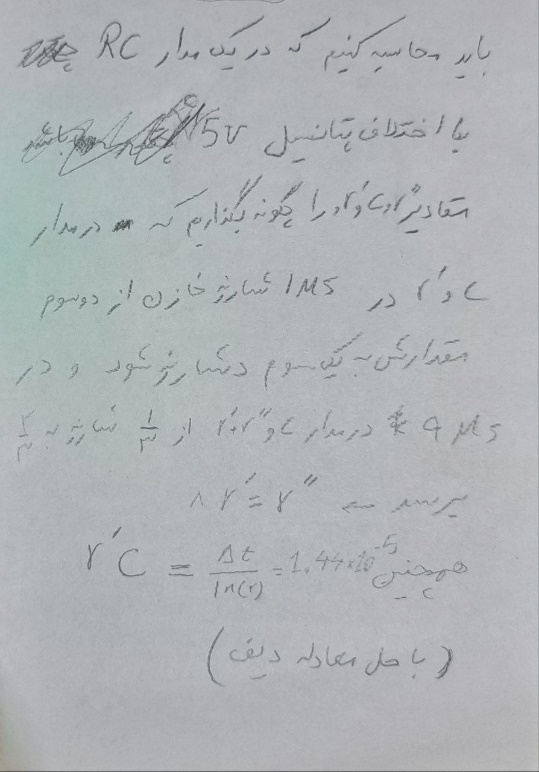 باید محاسبه کنیم که در یک مدار RC
با اختلاف پتانسیل 5v
مقادیر r'' و c و r' را چگونه بگذاریم که در مدار
c و r' در 1 Ms شارژ خازن از دو سوم
مقدارش به یک سوم دشارژ شود و در
9 Ms در مدار c و r'+r'' از 1/3 شارژ به 2/3
میرسد ⇒ 8r' = r''
همچنین r'C = Δt/ln(2) = 1.44×10
(با حل معادله دیف)